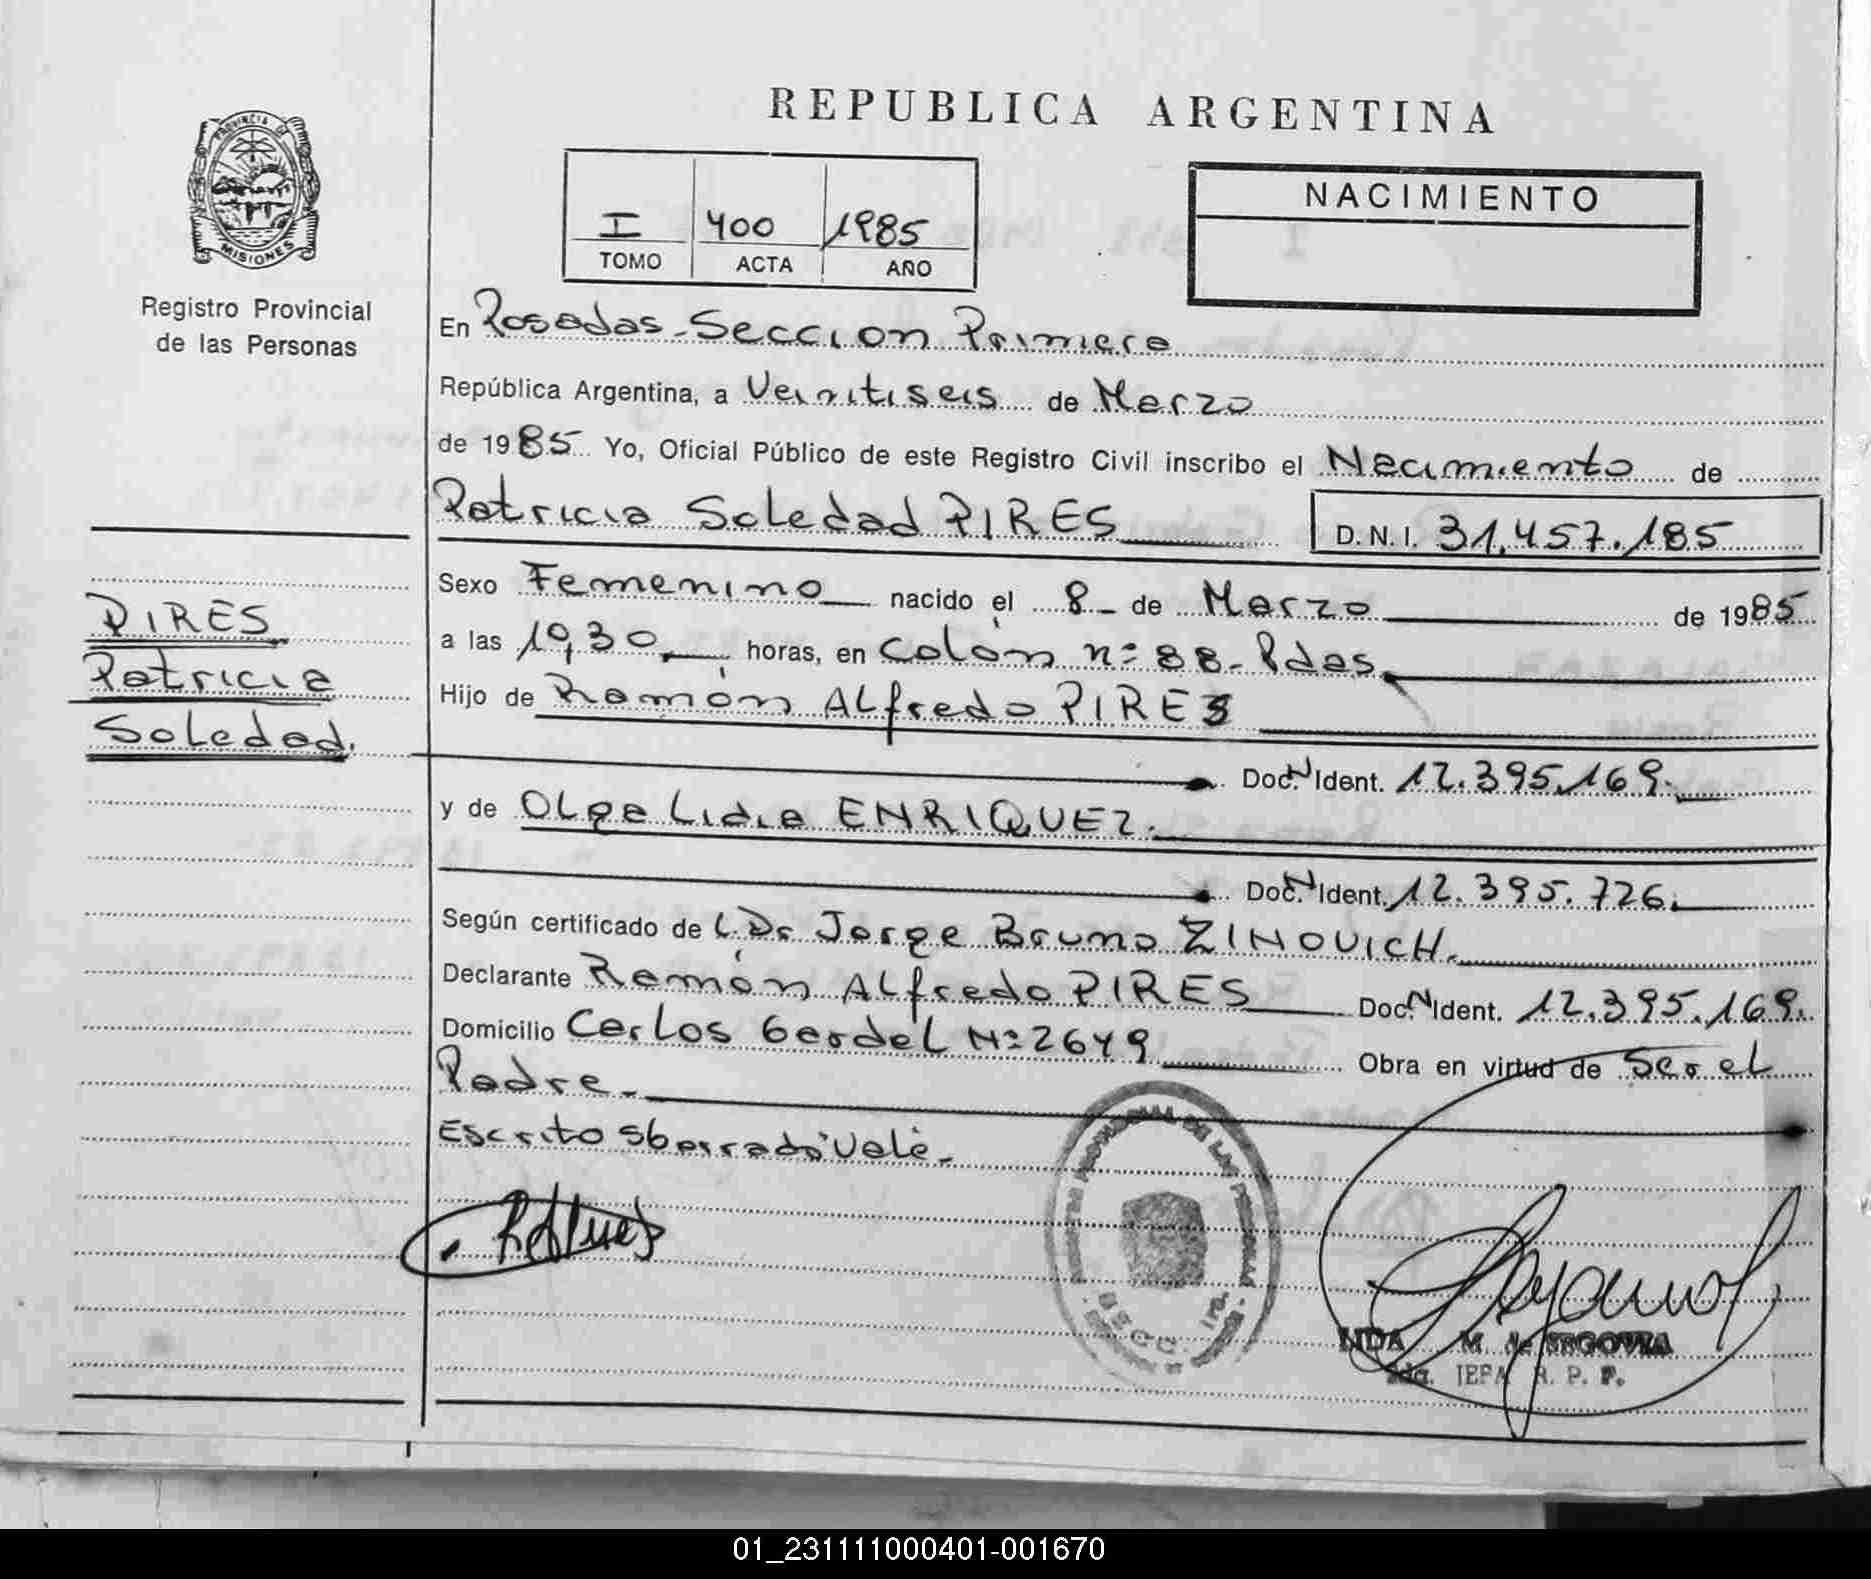 REPUBLICA ARGENTINA
PROVINCIA DE
MISIONES
Registro Provincial
de las Personas
I 400 1985
TOMO ACTA AÑO
NACIMIENTO
En Posadas-Seccion Primera
República Argentina, a Veintiseis de Marzo
de 1985 Yo, Oficial Público de este Registro Civil inscribo el Nacimiento de
Patricia Soledad PIRES D.N.I. 31.457.185
Sexo Femenino nacido el 8 de Marzo de 1985
PIRES
Patricia
Soledad.
a las 19,30 horas, en Colón nº 88-Pdas.
Hijo de Ramón ALfredo PIRES
Doc. N Ident. 12.395.169.
y de OLga Lidia ENRIQUEZ.
Doc. N Ident. 12.395.726.
Según certificado de L. Dr Jorge Bruno ZINOVICH.
Declarante Ramón ALfredo PIRES Doc. N Ident. 12.395.169.
Domicilio Carlos Gardel Nº 2649 Obra en virtud de Ser el
Padre.
Escrito s/borrado "Vale.
REGISTRO PROVINCIAL DE LAS PERSONAS
SECC. 1ra.
M. de SEGOVIA
JEFA R. P. P.
01_231111000401-001670